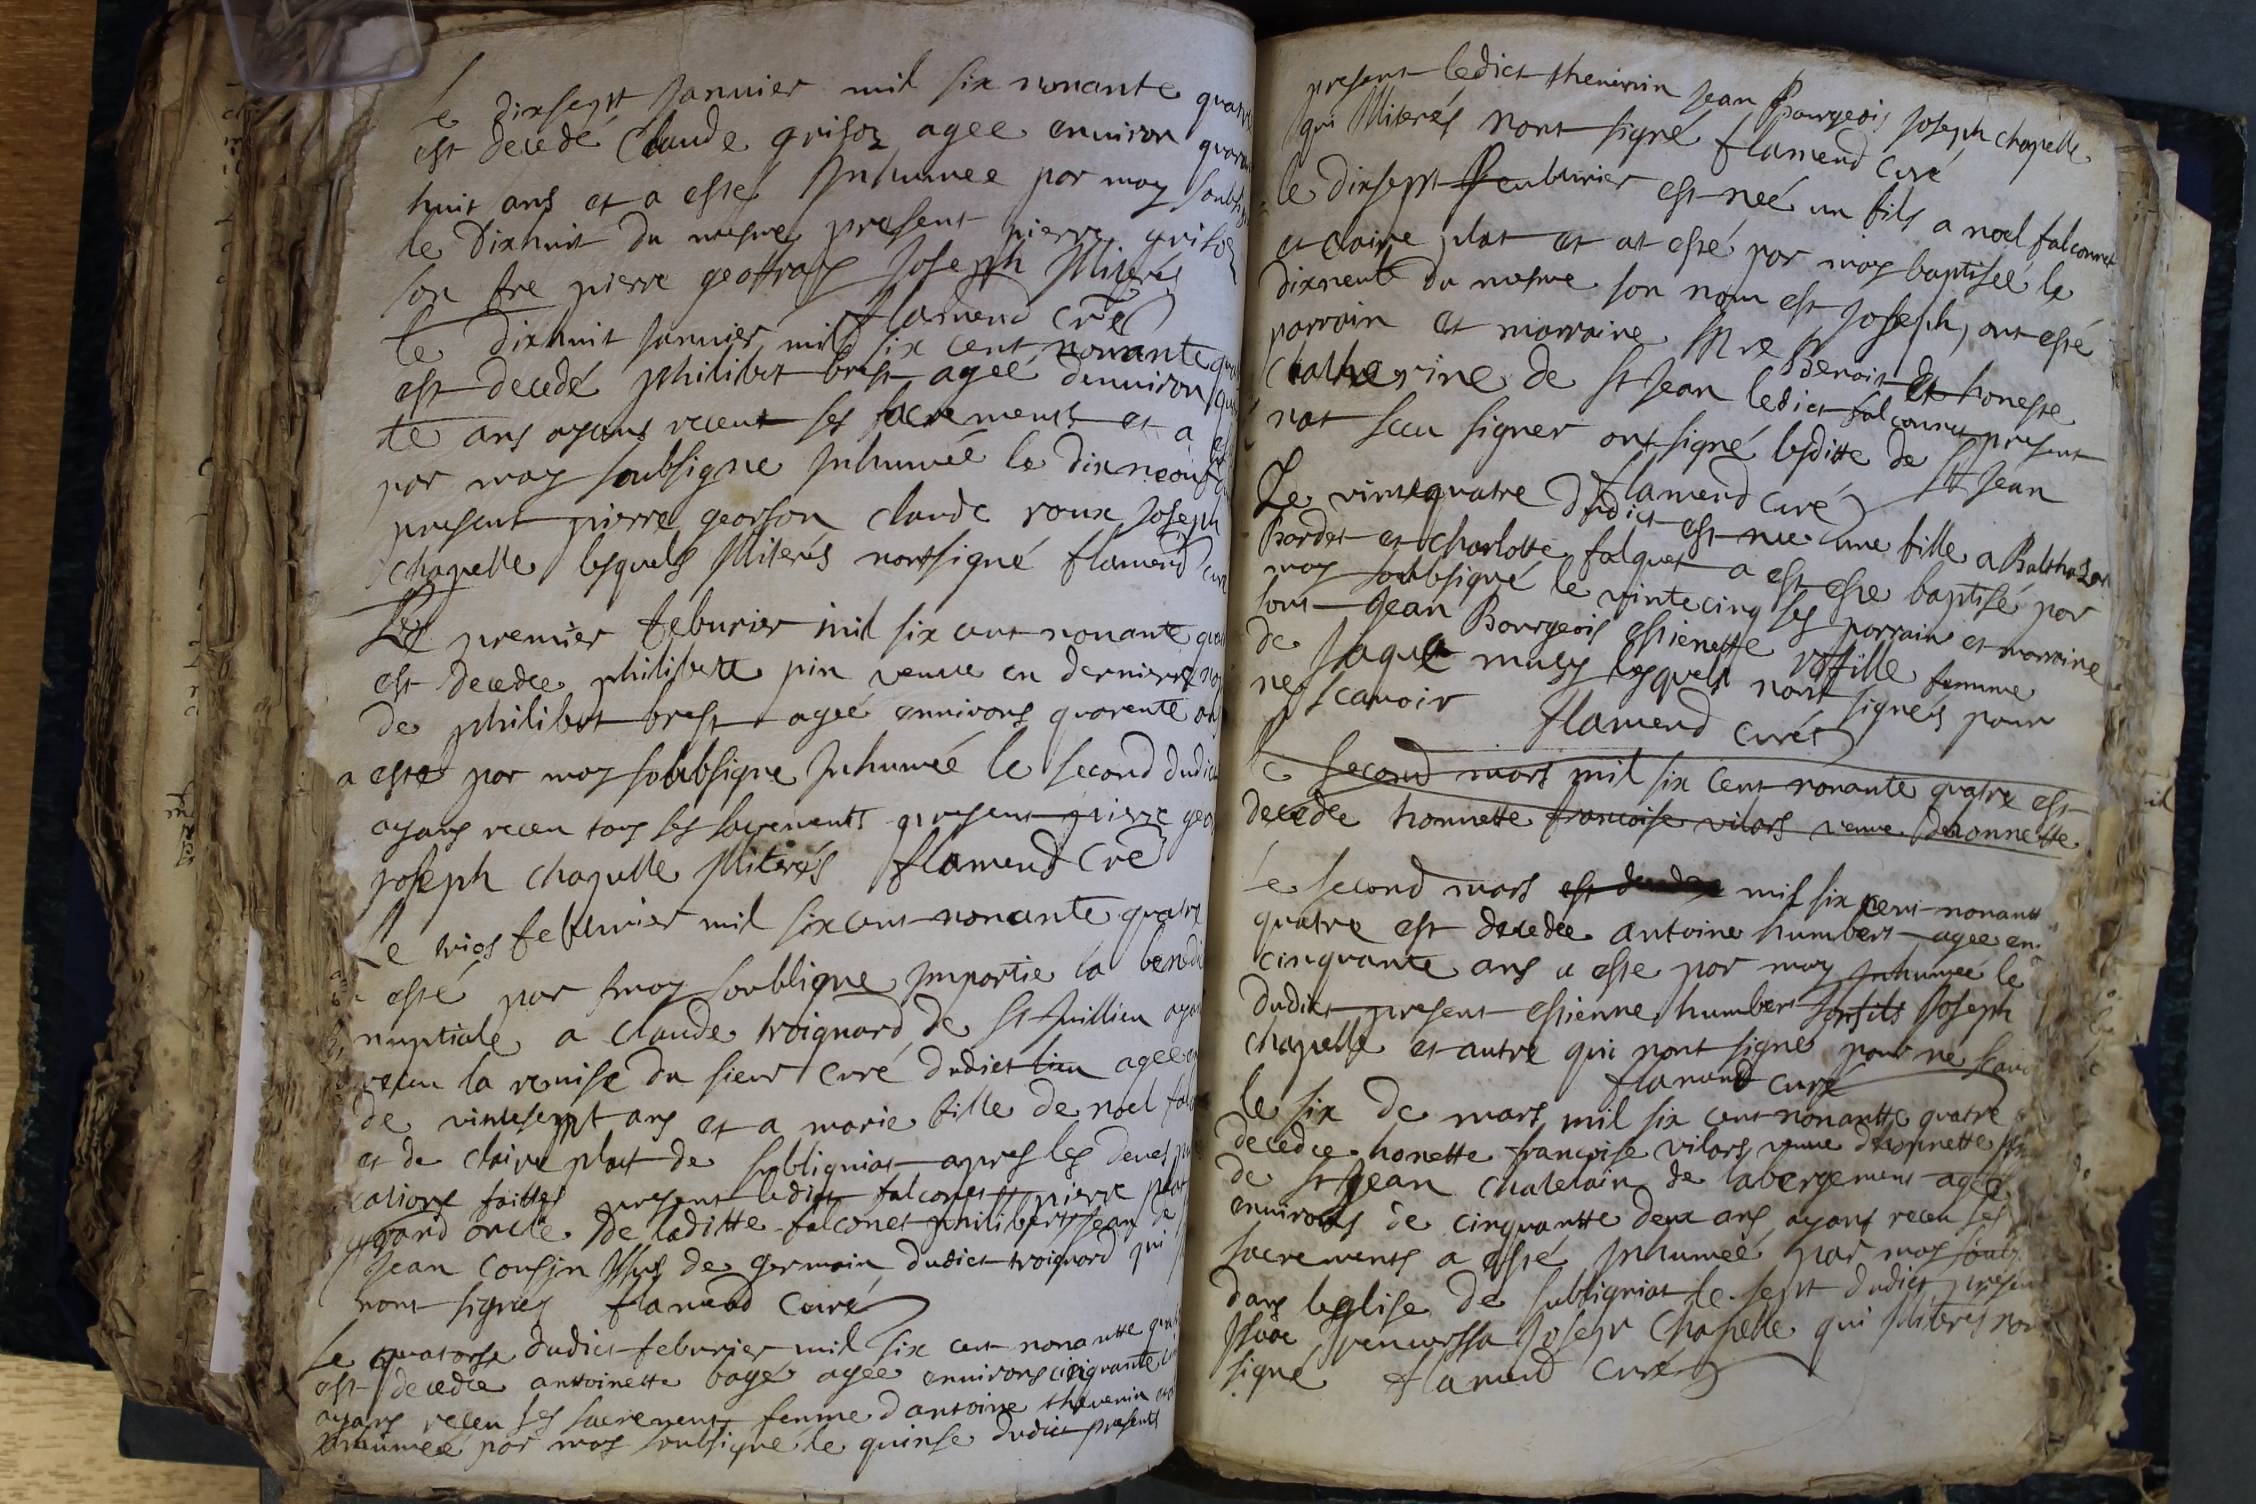 Le dixsept Janvier mil six nonante quatre
est decedé Claude grisoz agee environ quaran
huit ans et a estes Inhumee par moy soubsi
le dixhuit du mesme present pierre grisoz
son fre pierre geoffray Joseph Illiterés
flamend cre
le dixhuit Janvier mil six cent nonante qua
est decedé philibert brest ageé denuiron qu
te ans ayans receut ses sacrements et a es
par moy soubsigne Inhumée le dixneouf
present pierre georson claude roux Joseph
chapelle lesquels Illiterés nontsigné flamend cure
Le premier feburier mil six cent nonante qua
est decedee philiberte pin venue en derniere no
de philibert brest ageé environs quarente ans
a este par moy soubsigne Inhumée le second dudict
ayans receu tous ses sacrements present pierre geo
Joseph chapelle Illiterés flamend cre
Le trios feburier mil six cent nonante quatre
a esté par moy soubligne Impartie la benedi
nuptiale a claude troignard de St Juillien ayan
receu la remise du sieur curé dudict lieu agee en
de vintesept ans et a marie fille de noel fal
et de claire plat de subligniat apres les deues pu
cations faittes present ledict falconet pierre plat
grand oncle de laditte falconet philibert Jean de
Jean cousin de germain dudict troignard qui
nont signés flamend curé
Le quatorse dudict feburier mil six cent nonantte quat
est decedee anttoinette bagé agée environs cinquante
ayans receu ses sacrement femme dantoine thevenin
Inhumeé par moy soubsigné le quinse dudict presents
present ledict thevenin Jean Bourgeois Joseph chapelle
qui Illiterés nont signé flamend curé
le dixsept feubvrier est neé un fils a noel falconnet
et claire plat et at esté par moy baptiseé le
dixneuf du mesme son nom est Joseph, ont esté
parrain et marraine Mre Benoist et honeste
Catherine de St Jean ledict falconnet present
nat sceu signer ont signé lesditte de St Jean
flamend curé
Le vintequatre dudict est nee une fille a Balthazar
Bardet et charlotte falquet a est este baptisé par
moy soubsigné le vintecinq ses parrain et marraine
sont Jean Bourgeois estienette fille femme
de Jaque musy lesquels nont signés pour
ne scavoir flamend curés
Le second mars mil six cent nonante quatre est
decedee honnette francoise vilars venue deonnette
Le second mars est decedee mil six cent nonante
quatre est decedee antoine humbert agee en
cinquante ans a este par moy Inhumeé le
dudict present estienne humbert son fils Joseph
chapelle et autre qui nont signe pour ne scavo
flamend curé
le six de mars mil six cent nonantte quatre
decedee honette francoise vilars venue deonnette
de St Jean chatelain de labergement ageé
environs de cinquantte deux ans ayans receu ses
sacrements a esté Inhumeé par moy soubs
dans leglise de subligniat le sept dudict presen
Joseph Chapelle qui Illiterés non
signé flamend curé